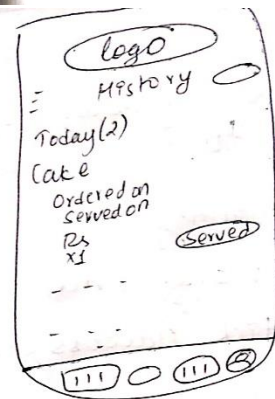 logo
History
Today(2)
Cake
Ordered on
Served on
Rs
Served
x1